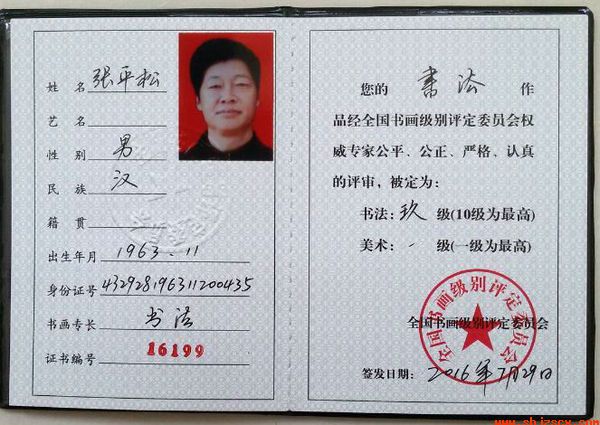 姓名 张平松
艺名
性别 男
民族 汉
籍贯
出生年月 1963.11
身份证号 432928196311200435
书画专长 书法
证书编号 16199
您的 书法 作
品经全国书画级别评定委员会权
威专家公平、公正、严格、认真
的评审，被定为：
书法：玖 级(10级为最高)
美术： 级(一级为最高)
全国书画级别评定委员会
全国书画级别评定委员会
签发日期：2016年7月29日